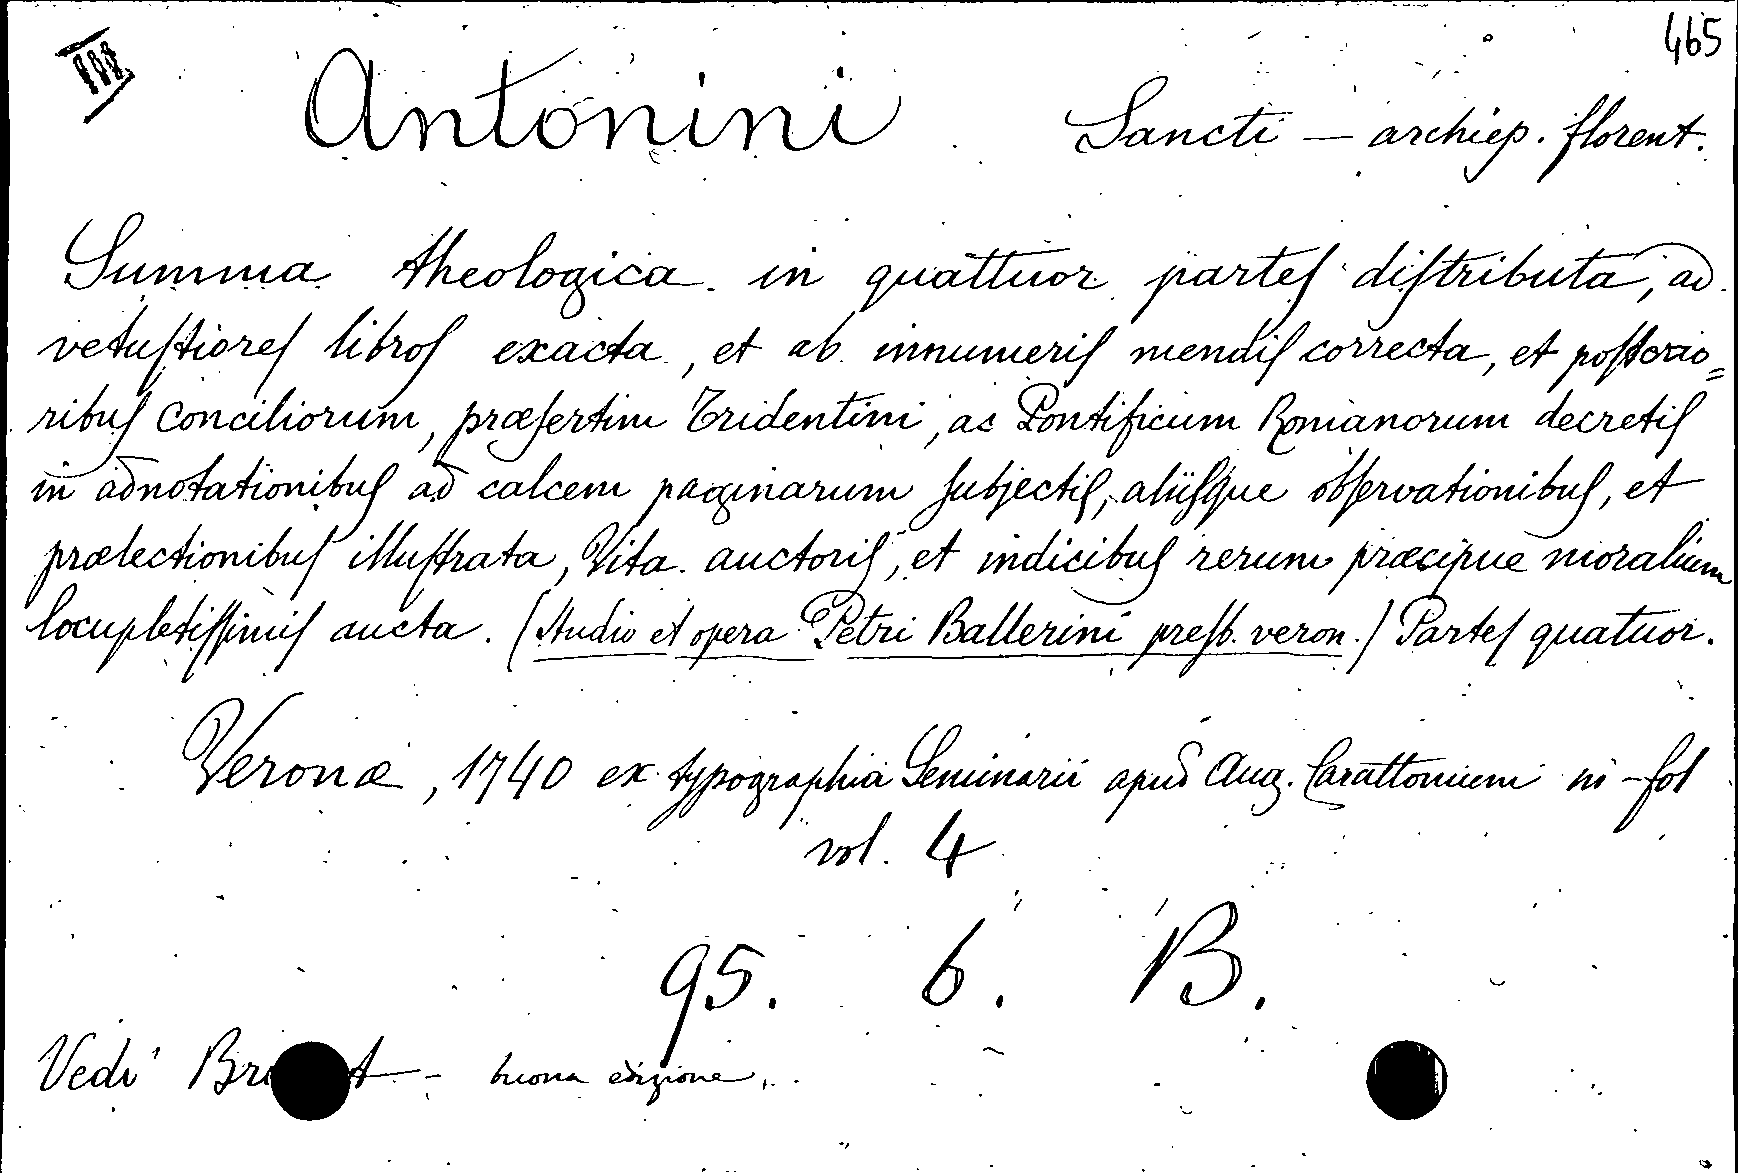 465
III
Antonini Sancti — archiep. florent.
Summa theologica in quattuor partes distributa, ad
vetustiores libros exacta, et ab innumeris mendis correcta, et posterio=
ribus conciliorum, præsertim Tridentini, ac Pontificum Romanorum decretis
in adnotationibus ad calcem paginarum subjectis, aliisque observationibus, et
prælectionibus illustrata, Vita auctoris, et indicibus rerum præcipue moralium
locupletissimis aucta. (Studio et opera Petri Ballerini presb. veron.) Partes quatuor.
Veronæ, 1740 ex typographia Seminarii apud Aug. Carattonium in-fol
vol. 4
95. 6. B.
Vedi - buona edizione.